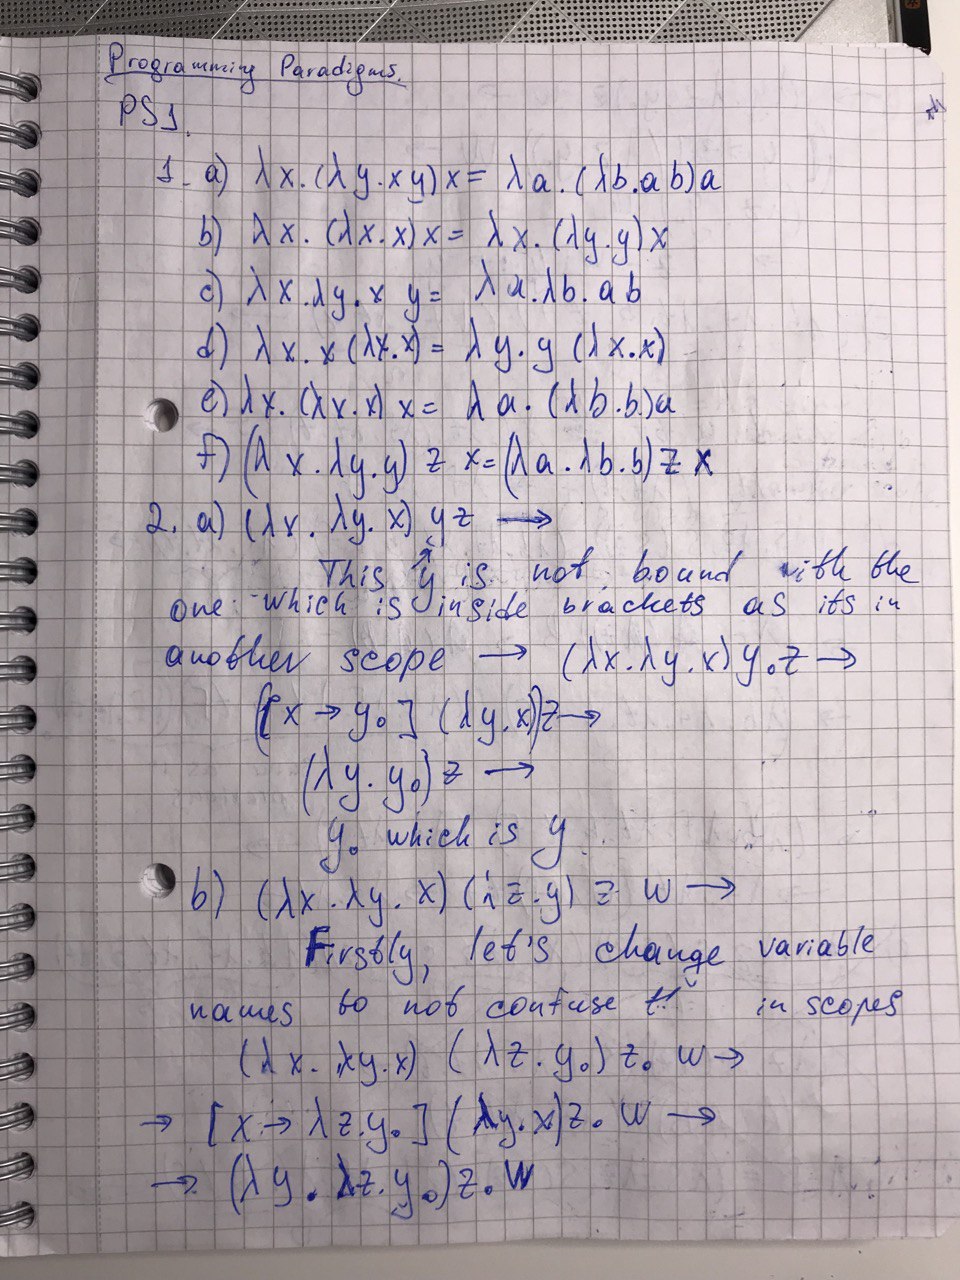 Programming Paradigms.
PS1.
1. a) λx.(λy.xy)x = λa.(λb.ab)a
b) λx.(λx.x)x = λx.(λy.y)x
c) λx.λy.x y = λa.λb.ab
d) λx.x(λx.x) = λy.y (λx.x)
e) λx.(λx.x) x = λa.(λb.b)a
f) (λx.λy.y) z x = (λa.λb.b) z x
2. a) (λx.λy.x) yz →
This y is not bound with the
one which is inside brackets as its in
another scope → (λx.λy.x) y₀z →
([x → y₀] (λy.x))z →
(λy.y₀) z →
y₀ which is y
b) (λx.λy.x) (λz.y) z w →
Firstly, let's change variable
names to not confuse in scopes
(λx.λy.x) (λz.y₀) z₀ w →
→ [x → λz.y₀] (λy.x) z₀ w →
→ (λy.λz.y₀) z₀ w